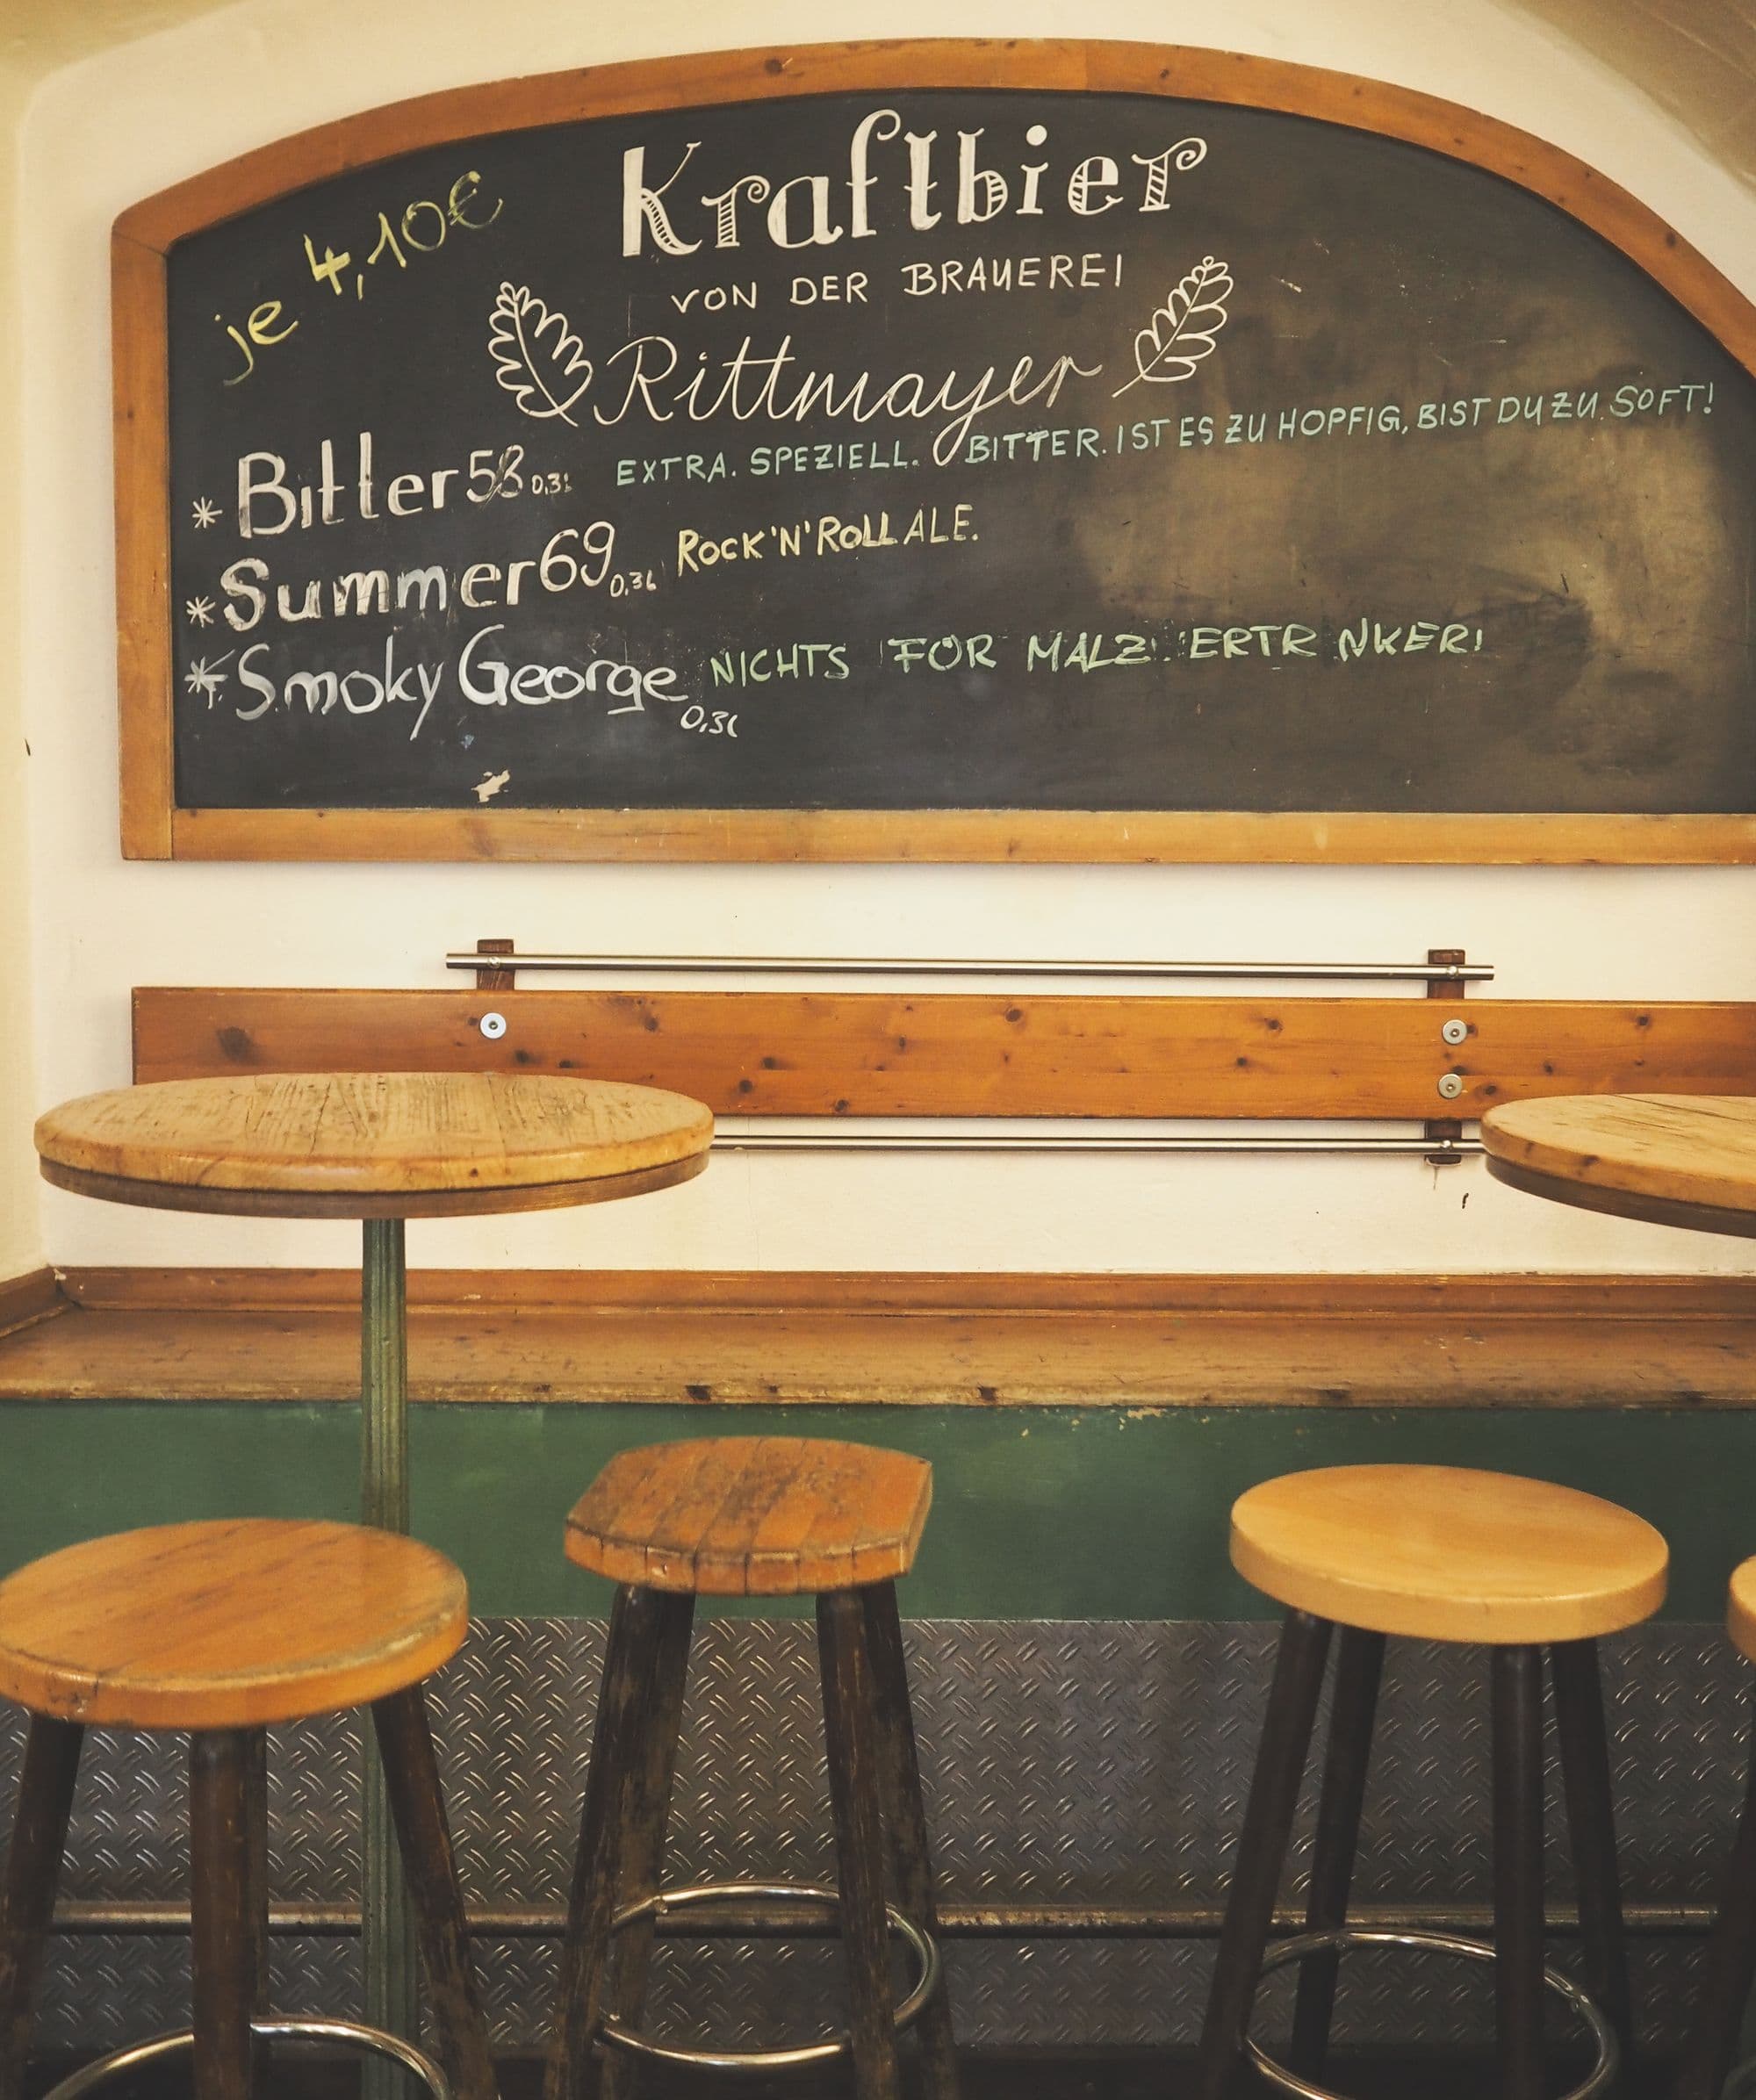 je 4,10€
Kraftbier
VON DER BRAUEREI
Rittmayer
* Bitter 58 0,3l EXTRA. SPEZIELL. BITTER. IST ES ZU HOPFIG, BIST DU ZU SOFT!
* Summer 69 0,3l ROCK'N'ROLL ALE.
* Smoky George 0,3l NICHTS FÜR MALZ